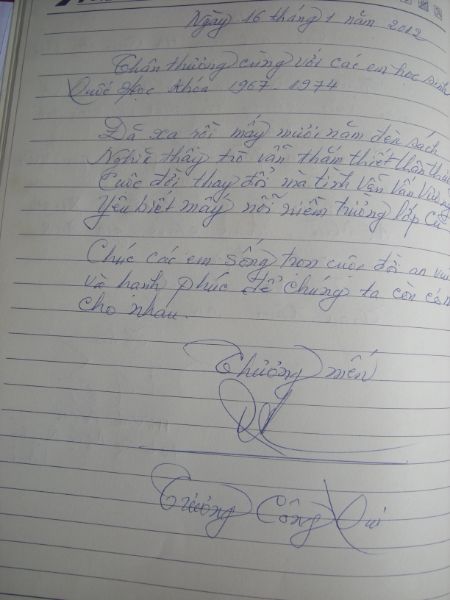 Ngày 16 tháng 1 năm 2012
Thân thương cùng với các em học sinh
Quốc Học khóa 1967-1974
Đã xa rồi mấy mươi năm đèn sách
Nghĩa thầy trò vẫn thắm thiết thân
Cuộc đời thay đổi mà tình vẫn vấn vương
Yêu biết mấy nỗi niềm trường lớp cũ
Chúc các em sống trọn cuộc đời an vui
và hạnh phúc để chúng ta còn
cho nhau.
Thương mến
Trương Công